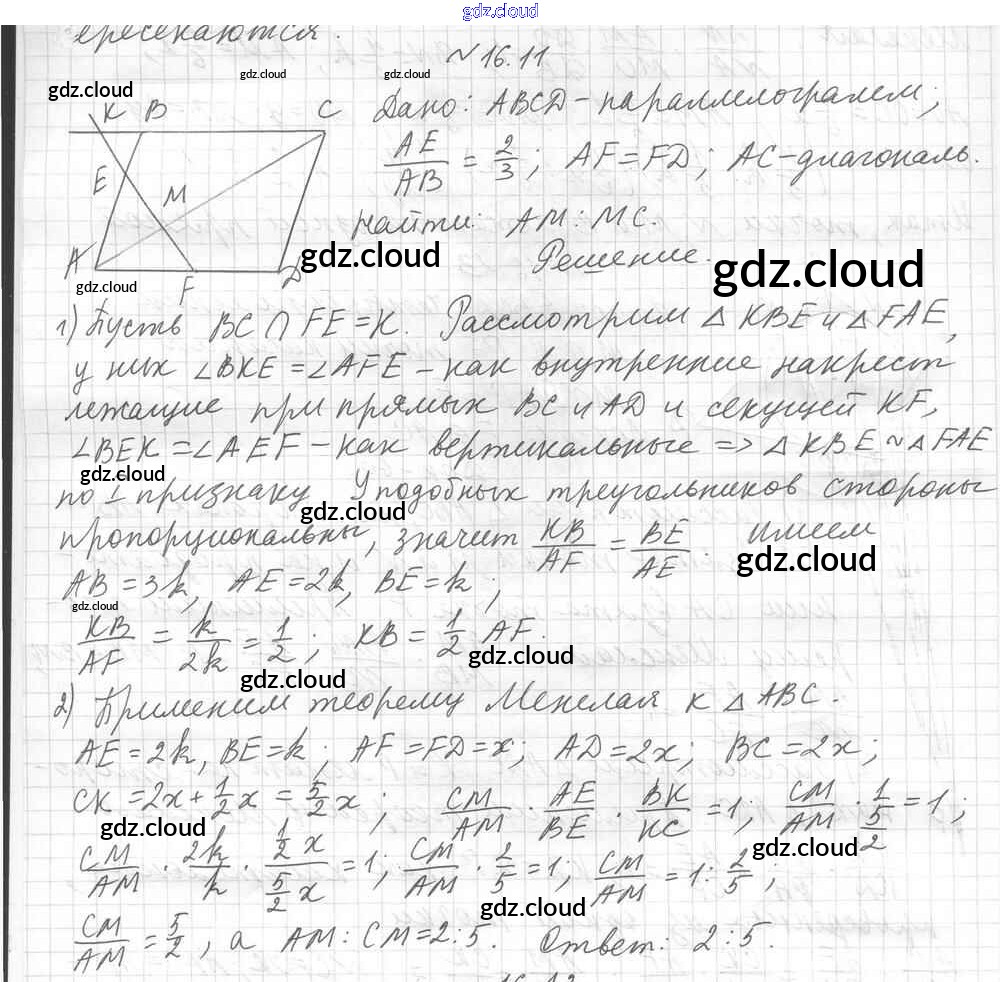 gdz.cloud
ересекаются.
№16.11
gdz.cloud gdz.cloud gdz.cloud
K B C Дано: ABCD - параллелограмм;
E AE/AB = 2/3; AF = FD; AC - диагональ.
M Найти: AM : MC.
A F D gdz.cloud Решение. gdz.cloud
gdz.cloud
1) Пусть BC ∩ FE = K. Рассмотрим △ KBE и △ FAE,
у них ∠BKE = ∠AFE - как внутренние накрест
лежащие при прямых BC и AD и секущей KF,
∠BEK = ∠AEF - как вертикальные => △ KBE ~ △ FAE
gdz.cloud
по 1 признаку. У подобных треугольников стороны
gdz.cloud
пропорциональны, значит KB/AF = BE/AE. имеем
gdz.cloud
AB = 3k, AE = 2k, BE = k;
gdz.cloud
KB/AF = k/2k = 1/2; KB = 1/2 AF.
gdz.cloud gdz.cloud
2) Применим теорему Менелая к △ ABC.
AE = 2k, BE = k; AF = FD = x; AD = 2x; BC = 2x;
CK = 2x + 1/2 x = 5/2 x; CM/AM · AE/BE · BK/KC = 1; CM/AM · 1/(5/2) = 1;
gdz.cloud gdz.cloud
CM/AM · 2k/k · (1/2 x)/(5/2 x) = 1; CM/AM · 2/5 = 1; CM/AM = 1 : 2/5;
gdz.cloud
CM/AM = 5/2, а AM : CM = 2 : 5. Ответ: 2 : 5.